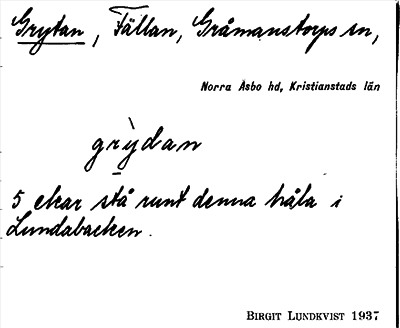 Grytan, Fällan, Gråmanstorps sn,
Norra Åsbo hd, Kristianstads län
grỳdan
5 ekar stå runt denna håla i
Lundabacken.
BIRGIT LUNDKVIST 1937